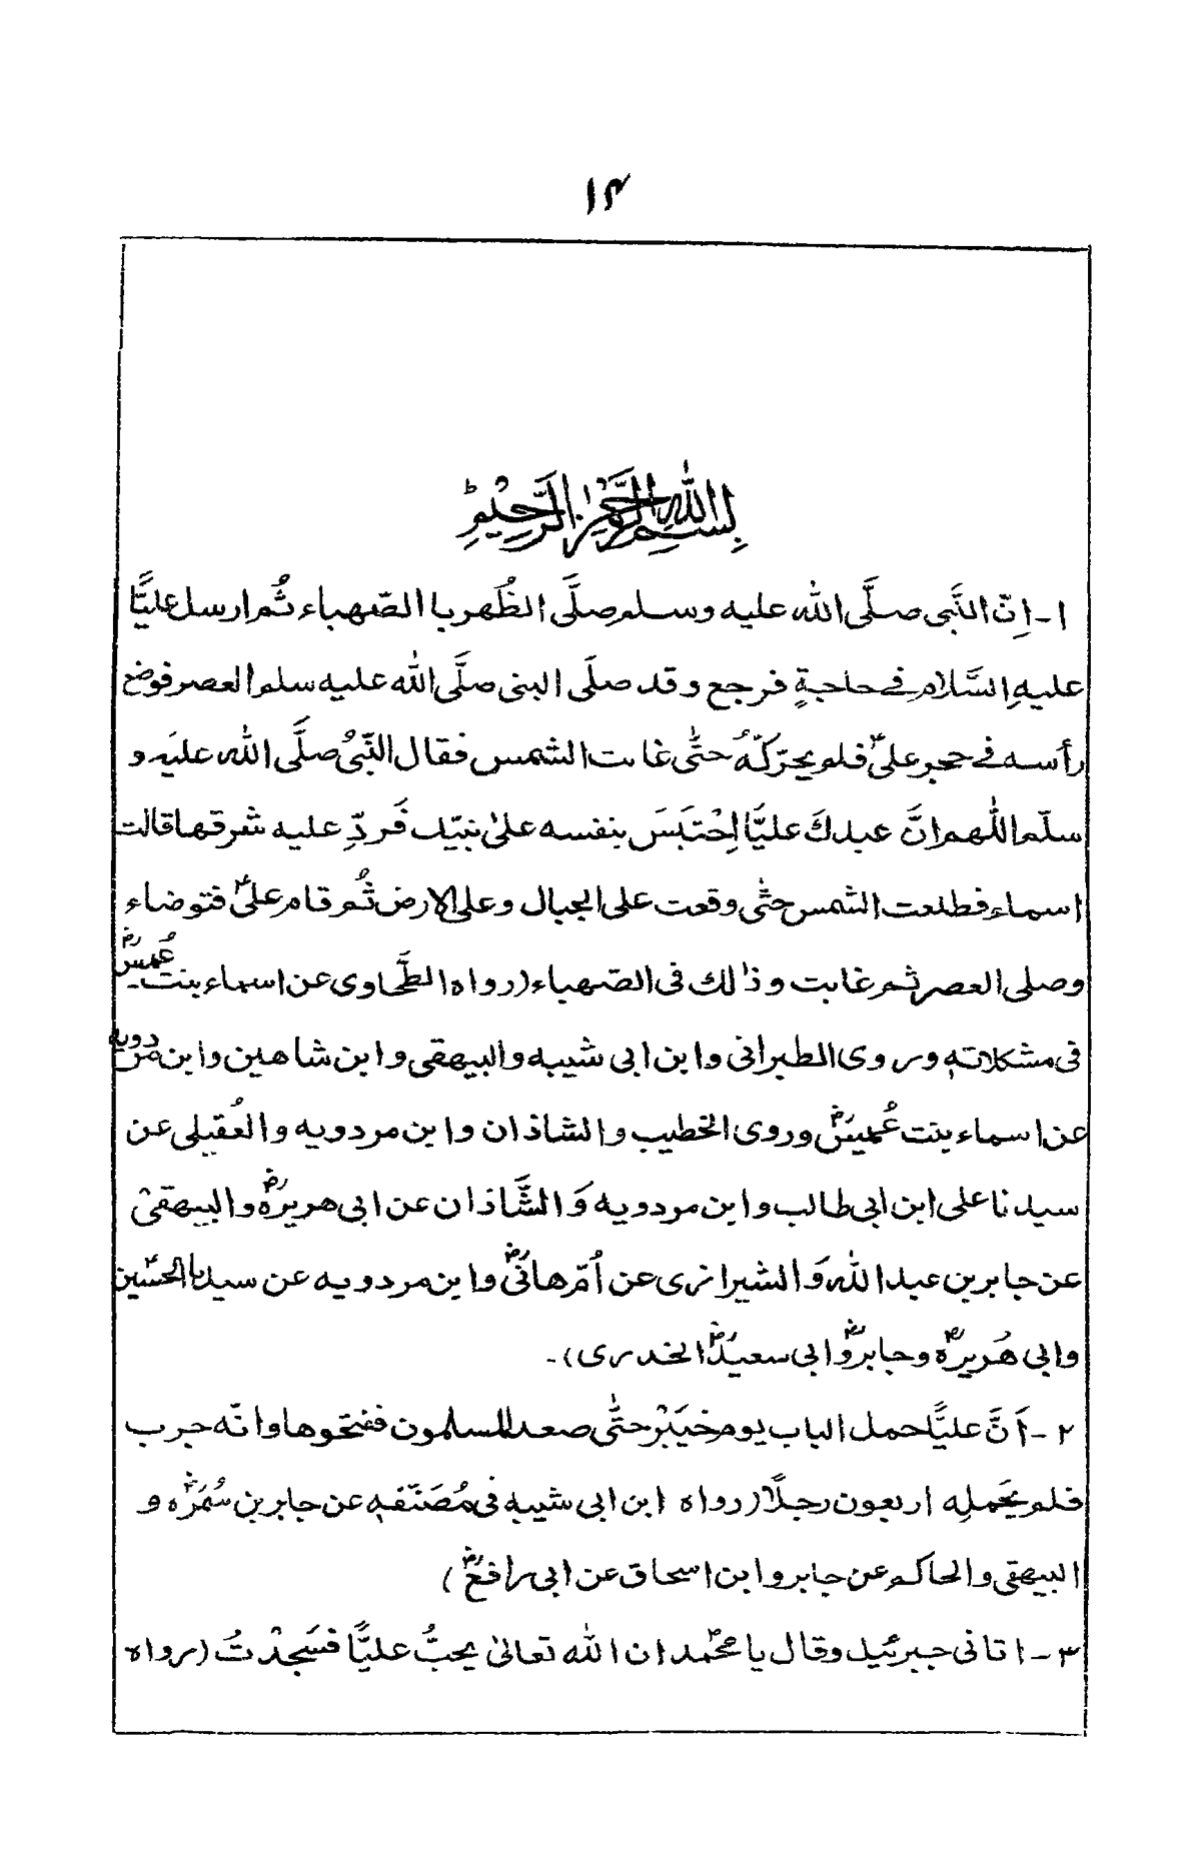 ۱۴
بِسْمِ اللّٰهِ الرَّحْمٰنِ الرَّحِیْمِ
۱-اِنّ النَّبی صلَّی الله علیه وسلم صلَّی الظُهر با الصّهباء ثُم ارسل علیًّا
علیهِ السَّلام فی حاجةٍ فرجع وقد صلَی البنی صلَّی الله علیه سلم العصر فوضع
رأسه فی حجر علیؑ فلم یحرّکهُ حتّٰی غابت الشمس فقال النّبیُ صلَّی الله علیَه و
سلّم اللّٰهم انَّ عبدكَ علیًّا اِحْتَبَسَ بنفسه علیٰ نبیّك فَردِّ علیه شرقها قالت
اسماء فطلعت الشمس حتّٰی وقعت علی الجبال وعلی الارض ثُم قام علیؑ فتوضاء
وصلی العصر ثم غابت وذٰلك فی الصّهباء (رواه الطَّحاوی عن اسماء بنت عُمیسؓ
فی مشکلاته وروی الطبرانی وابن ابی شیبه والبیهقی وابن شاهین وابن مردویه
عن اسماء بنت عُمیسؓ وروی الخطیب والشاذان وابن مردویه والعُقیلی عن
سیدنا علی ابن ابی طالب وابن مردویه وَ الشَّاذان عن ابی هریرهؓ والبیهقی
عن جابر بن عبد الله وَ الشیرازی عن اُمّ هانیؓ وابن مردویه عن سیدنا الحسین
وابی هُریرهؓ وجابرؓ وابی سعیدؓ الخدری)-
۲-اَنَّ علیًّا حمل الباب یوم خیبَرْ حتّٰی صعد المسلمون ففتحوها وانّه جرب
فلم یحَملِه اربعون رجلًا (رواه ابن ابی شیبه فی مُصَنّفه عن جابر بن سُمَرَهؓ و
البیهقی والحاکم عن جابر وابن اسحاق عن ابی رافعؓ)
۳-اتانی جبرئیل وقال یا محمّد ان الله تعالیٰ یحبُّ علیًّا فسَجدْتُ (رواه